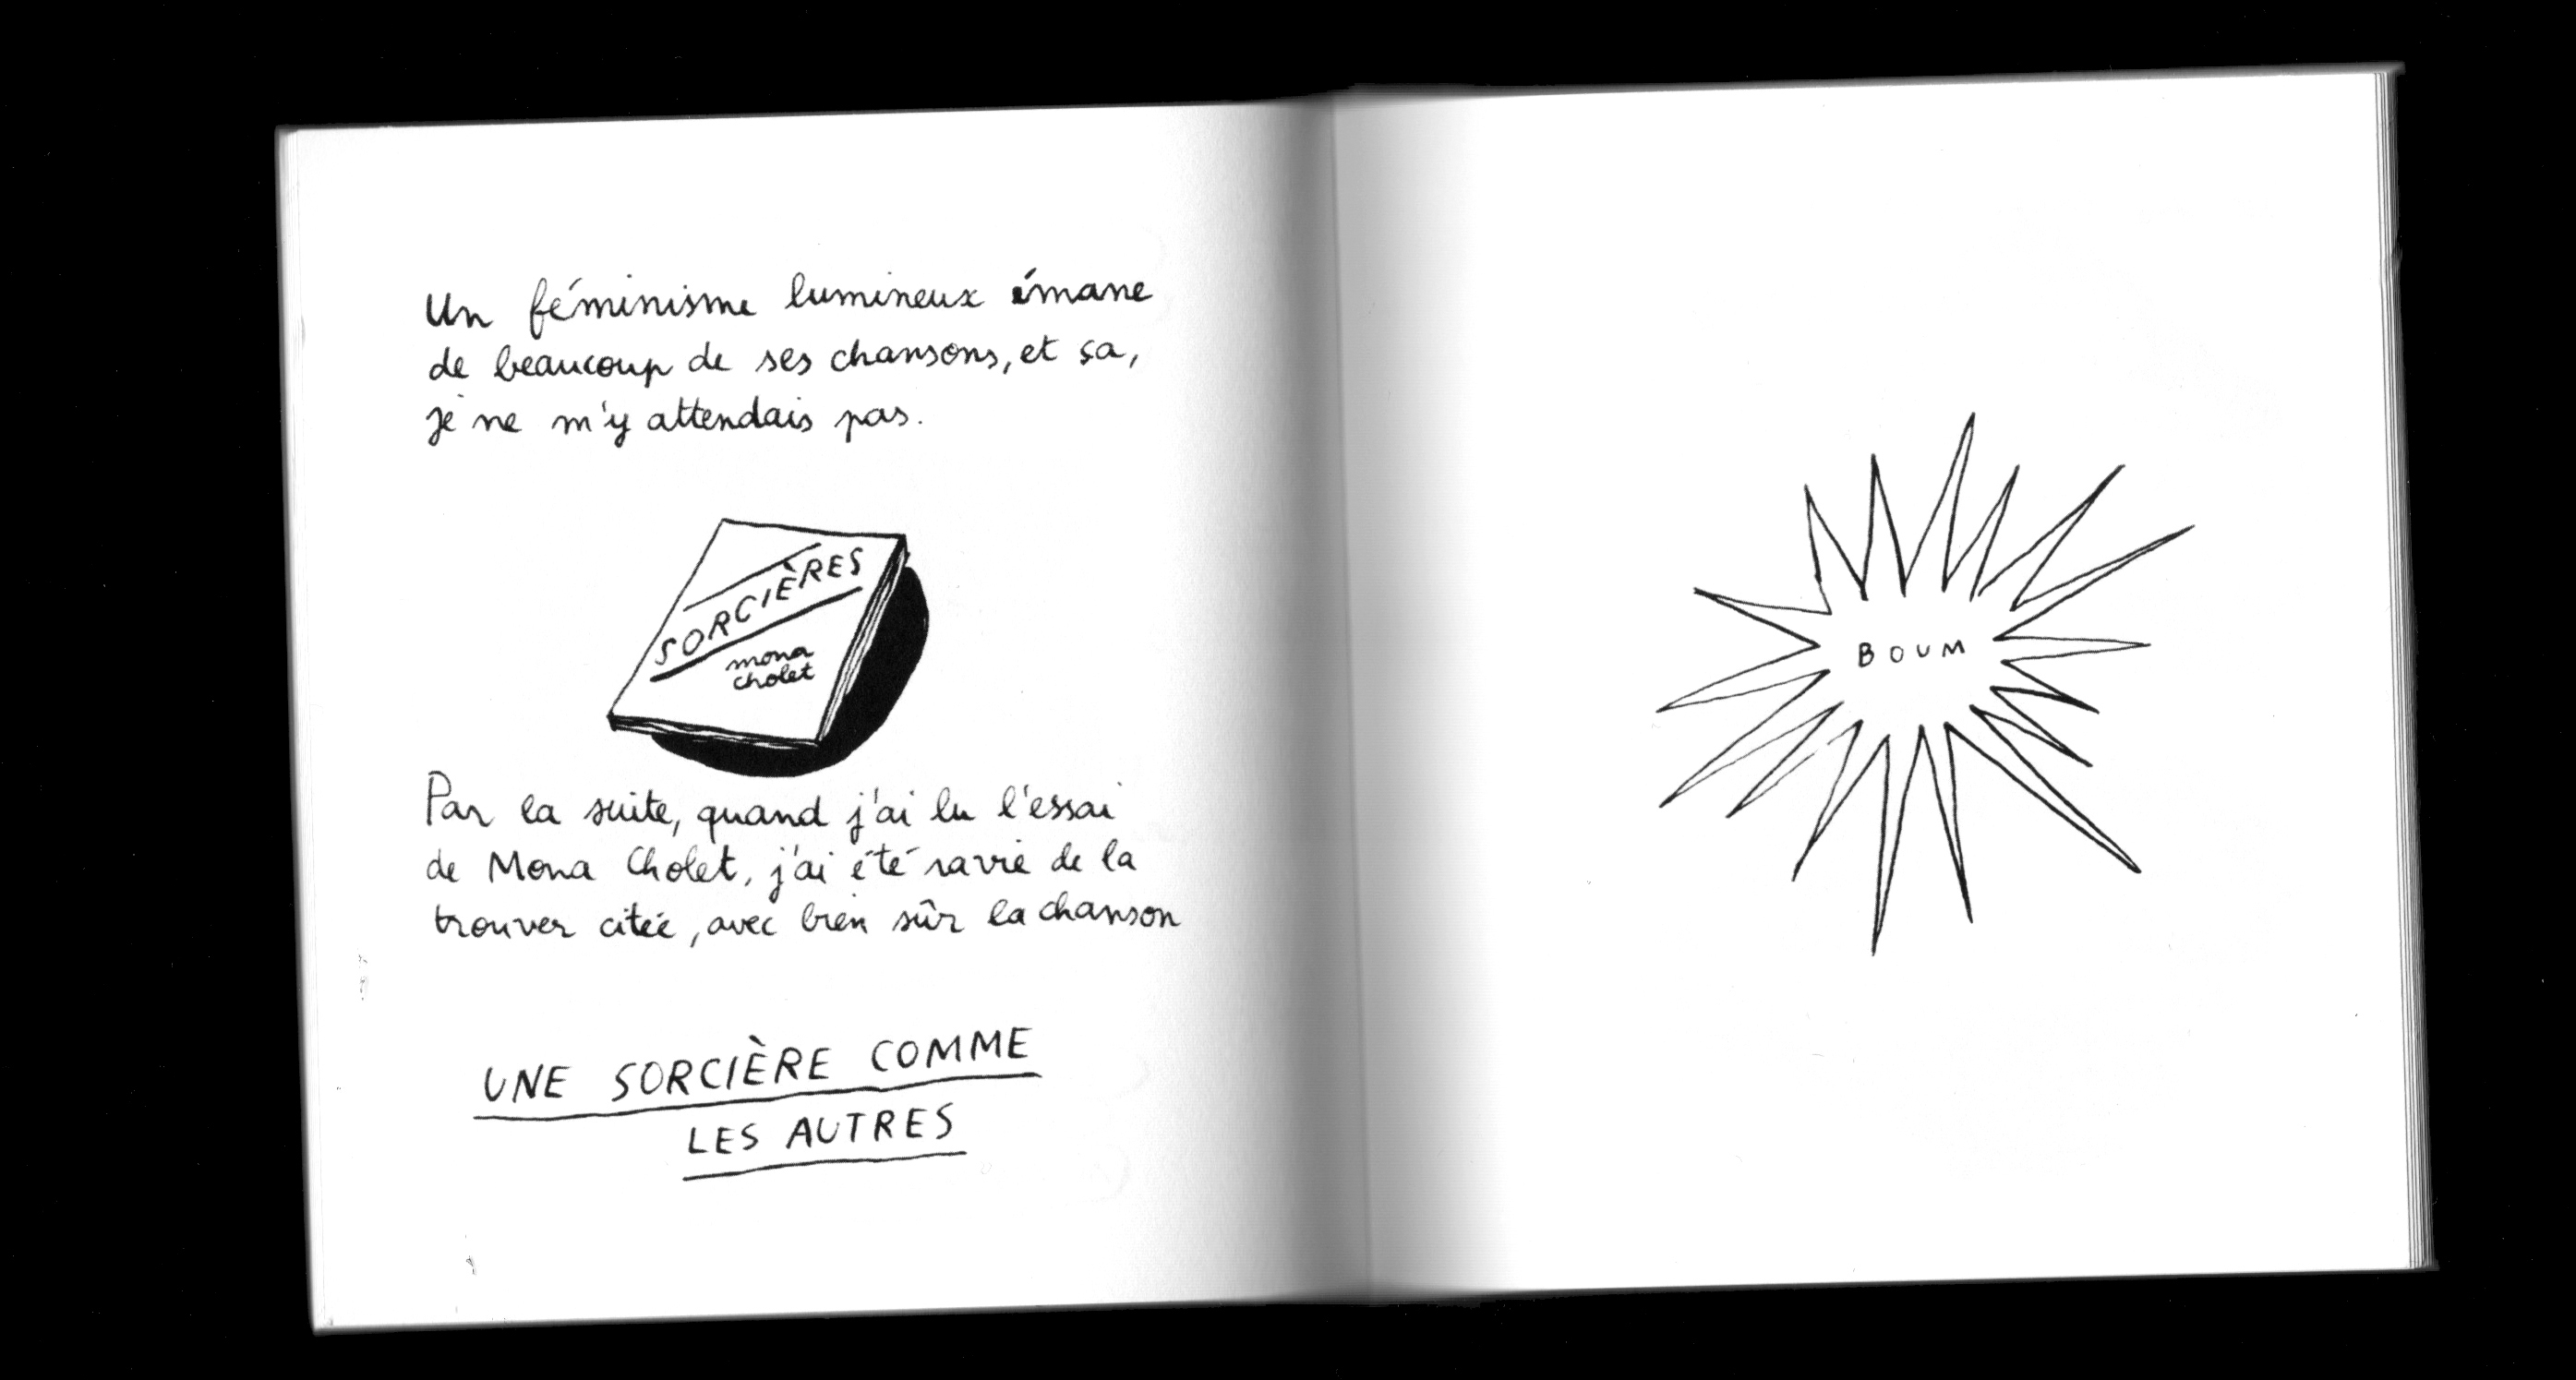 Un féminisme lumineux émane
de beaucoup de ses chansons, et ça,
je ne m'y attendais pas.
SORCIÈRES
mona
cholet
Par la suite, quand j'ai lu l'essai
de Mona Cholet, j'ai été ravie de la
trouver citée, avec bien sûr la chanson
UNE SORCIÈRE COMME
LES AUTRES
BOUM